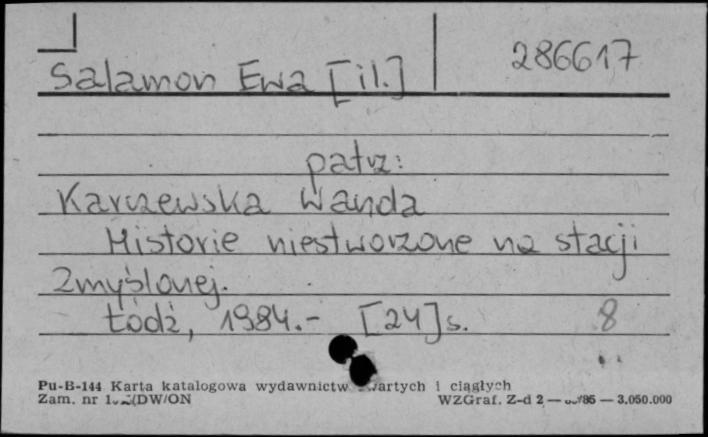 Salamon Ewa [il.] 286617
patrz:
Karczewska Wanda
Historie niestworzone na stacji
Zmyślonej.
Łódź, 1984.- [24]s. 8
Pu-B-144 Karta katalogowa wydawnictw i ciągłych
Zam. nr (DW/ON WZGraf. Z-d 2 — /85 — 3.050.000